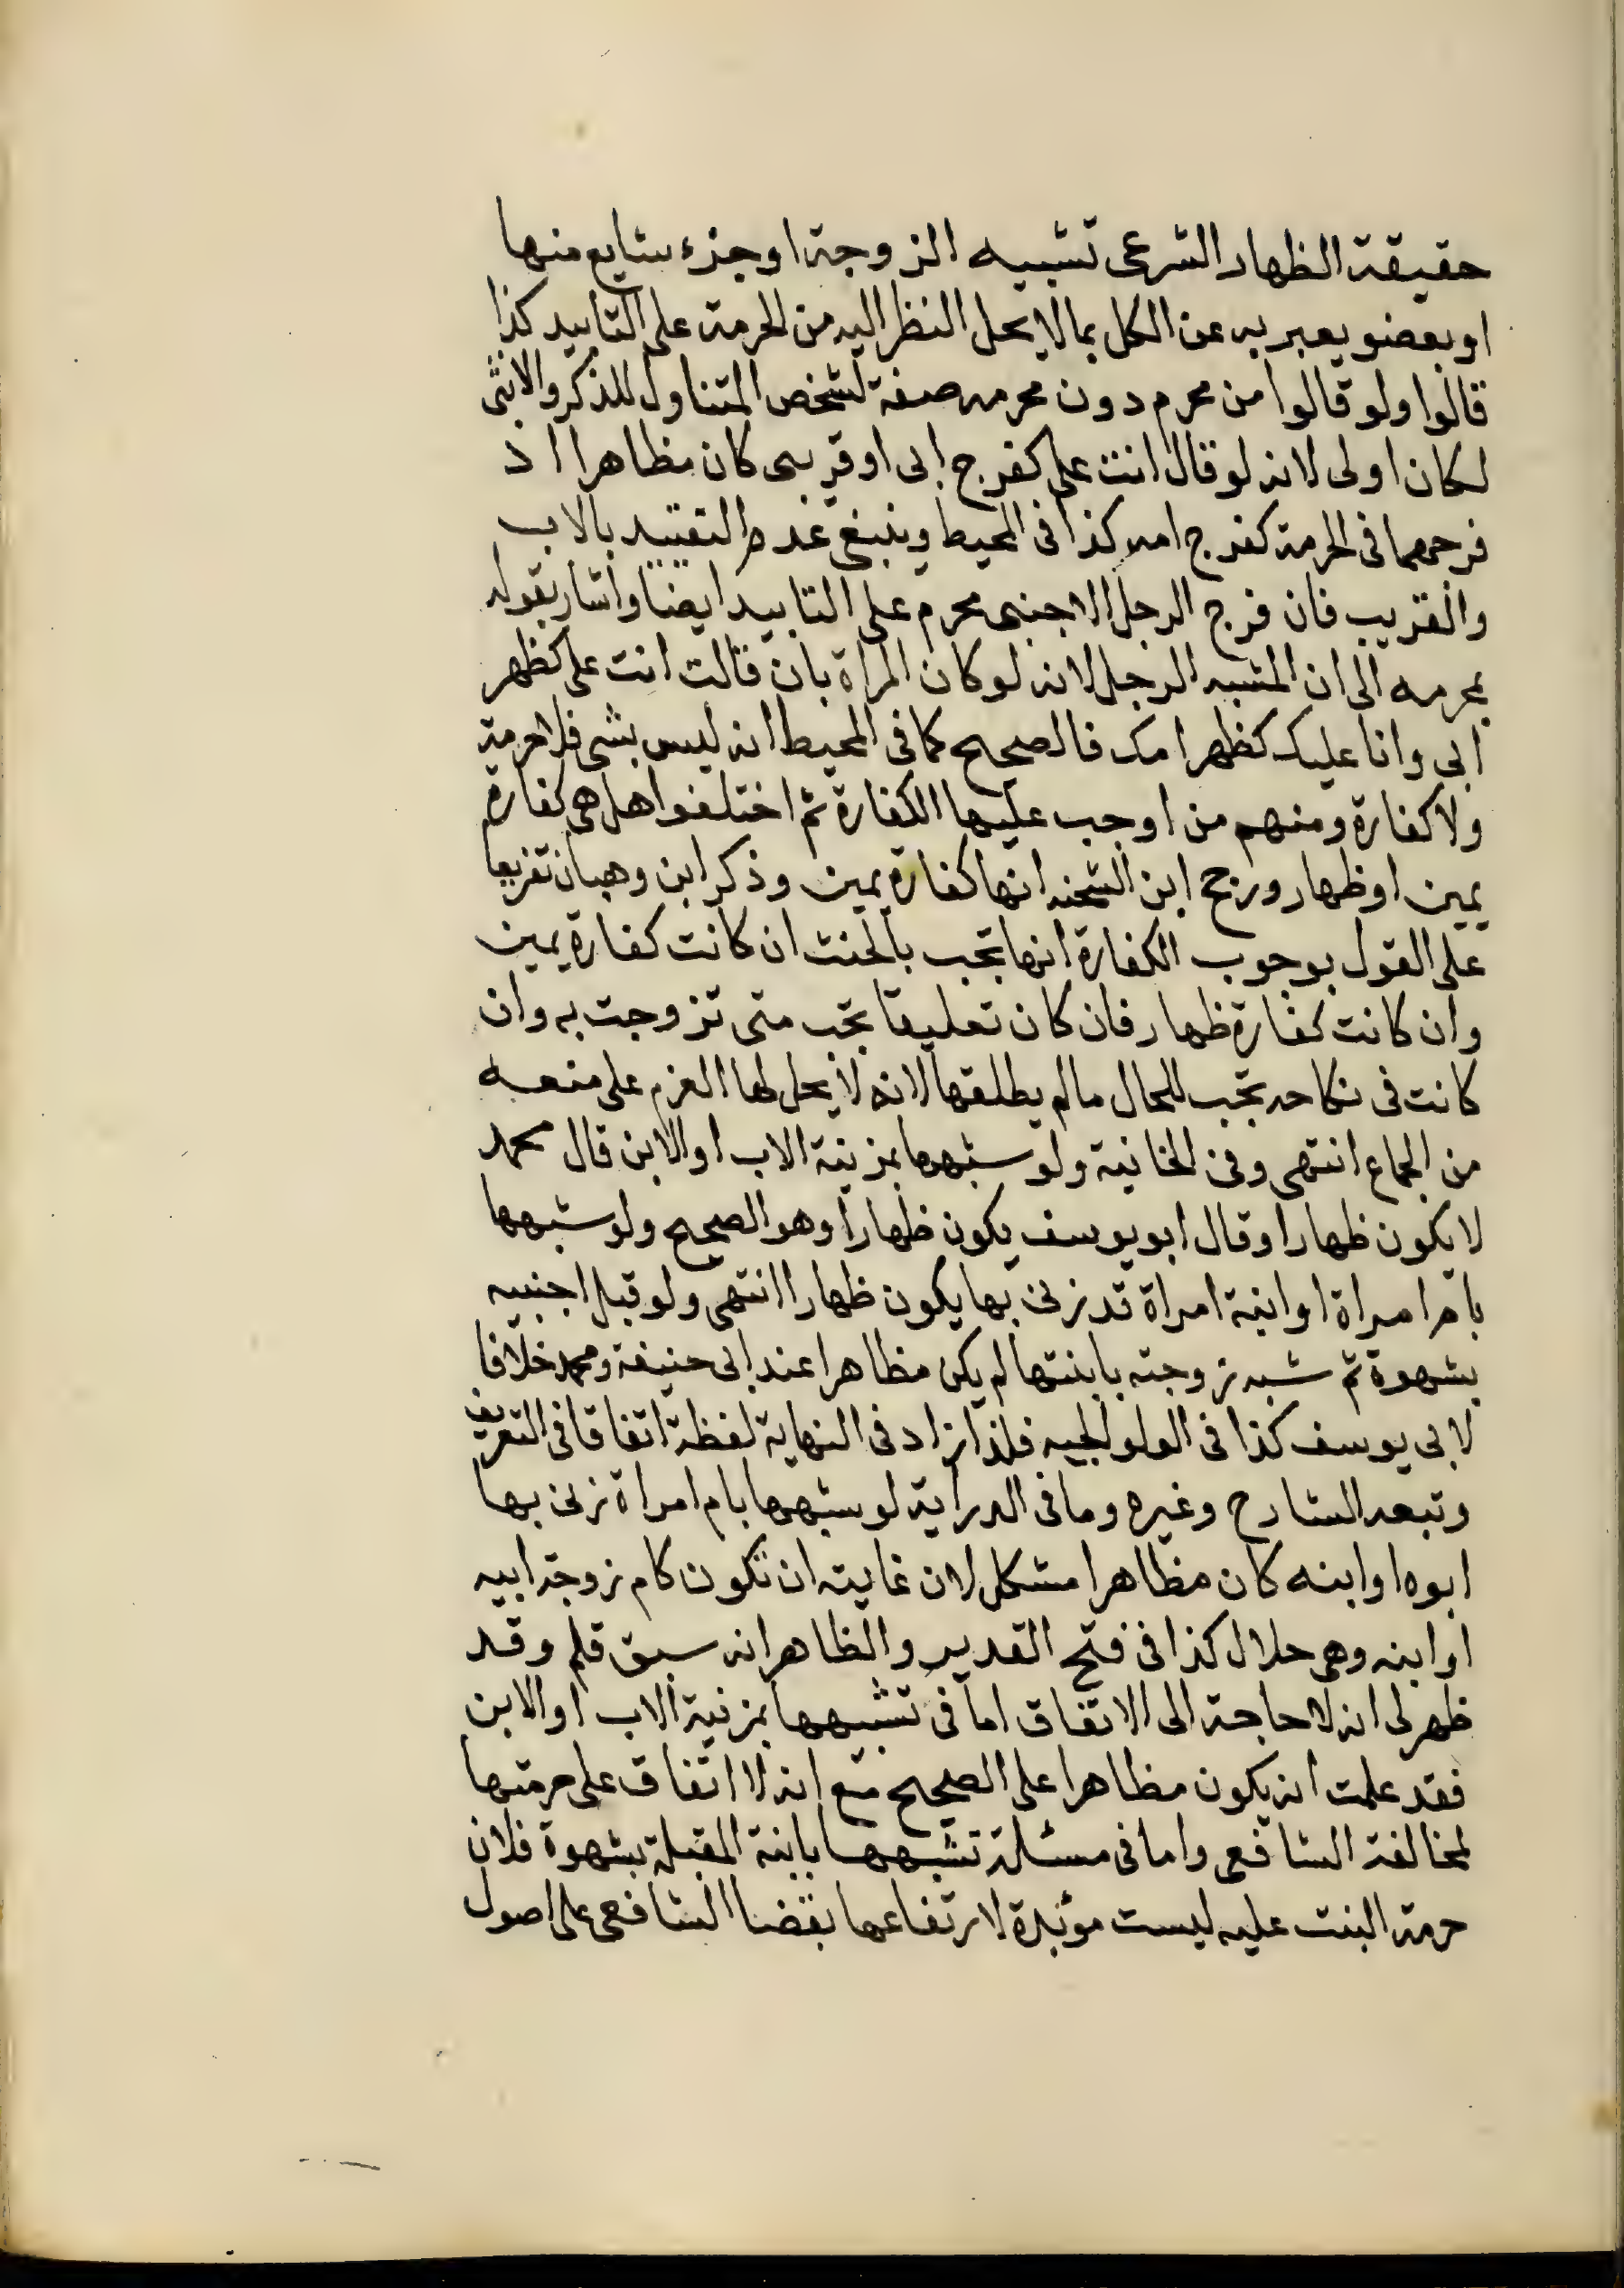 حقيقة الظهار الشرعى تشبيه الزوجة او جزء شايع منها
او بعضو يعبر به عن الكل بما لا يحل النظر اليه من المحرمة على التابيد كذا
قالوا ولو قالوا من محرم دون محرمه صفة لشخص المتناول للذكر والانثى
لكان اولى لانه لو قال انت على كفرج ابى او قريبى كان مظاهرا اذ
فرجهما فى الحرمة كفرج امه كذا فى المحيط وينبغى عدم التقييد بالاب
والقريب فان فرج الرجل الاجنبى محرم على التابيد ايضا واشار بقوله
بمحرمه الى ان المشبه الرجل لانه لو كان المراة بان قالت انت على كظهر
ابى وانا عليك كظهر امك فالصحيح كما فى المحيط انه ليس بشى فلا حرمة
ولا كفارة ومنهم من اوجب عليها الكفارة ثم اختلفوا هل هى كفارة
يمين او ظهار ورجح ابن الشحنه انها كفارة يمين وذكر ابن وهبان تفريعا
على القول بوجوب الكفارة انها تجب بالحنث ان كانت كفارة يمين
وان كانت كفارة ظهار فان كان تعليقا تجب متى تزوجت به وان
كانت فى نكاحه تجب للحال مالم يطلقها لانه لا يحل لها العزم على منعه
من الجماع انتهى وفى الخانية ولو شبهها بمزنية الاب او الابن قال محمد
لا يكون ظهارا وقال ابو يوسف يكون ظهارا وهو الصحيح ولو شبهها
بام امراة او ابنة امراة قد زنى بها يكون ظهارا انتهى ولو قبل اجنبيه
بشهوة ثم شبه زوجته بابنتها لم يكن مظاهرا عند ابى حنيفة ومحمد خلافا
لابى يوسف كذا فى الولوالجيه فلذا زاد فى النهاية لفظة اتفاقا فى التعريف
وتبعه الشارح وغيره وما فى الدراية لو شبهها بام امراة زنى بها
ابوه او ابنه كان مظاهرا مشكل لان غايته ان تكون كام زوجة ابيه
او ابنه وهى حلال كذا فى فتح القدير والظاهر انه سبق قلم وقد
ظهر لى انه لا حاجة الى الاتفاق اما فى تشبيهها بمزنية الاب او الابن
فقد علمت انه يكون مظاهرا على الصحيح مع انه لا اتفاق على حرمتها
لمخالفة الشافعى واما فى مسئلة تشبهها بابنة المقبلة بشهوة فلان
حرمة البنت عليه ليست مؤبدة لارتفاعها بقضا الشافعى على اصول